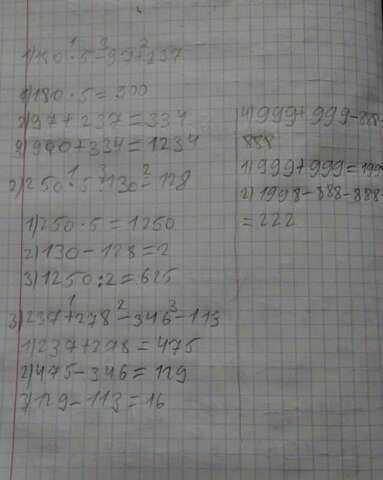 1)180·5-97+237
1)180·5=900
2)97+237=334
3)900+334=1234
2)250·5:130-128
1)250·5=1250
2)130-128=2
3)1250:2=625
3)237+278-346-113
1)237+278=475
2)475-346=129
3)129-113=16
4)999+999-888-
888
1)999+999=199
2)1998-888-888-
=222